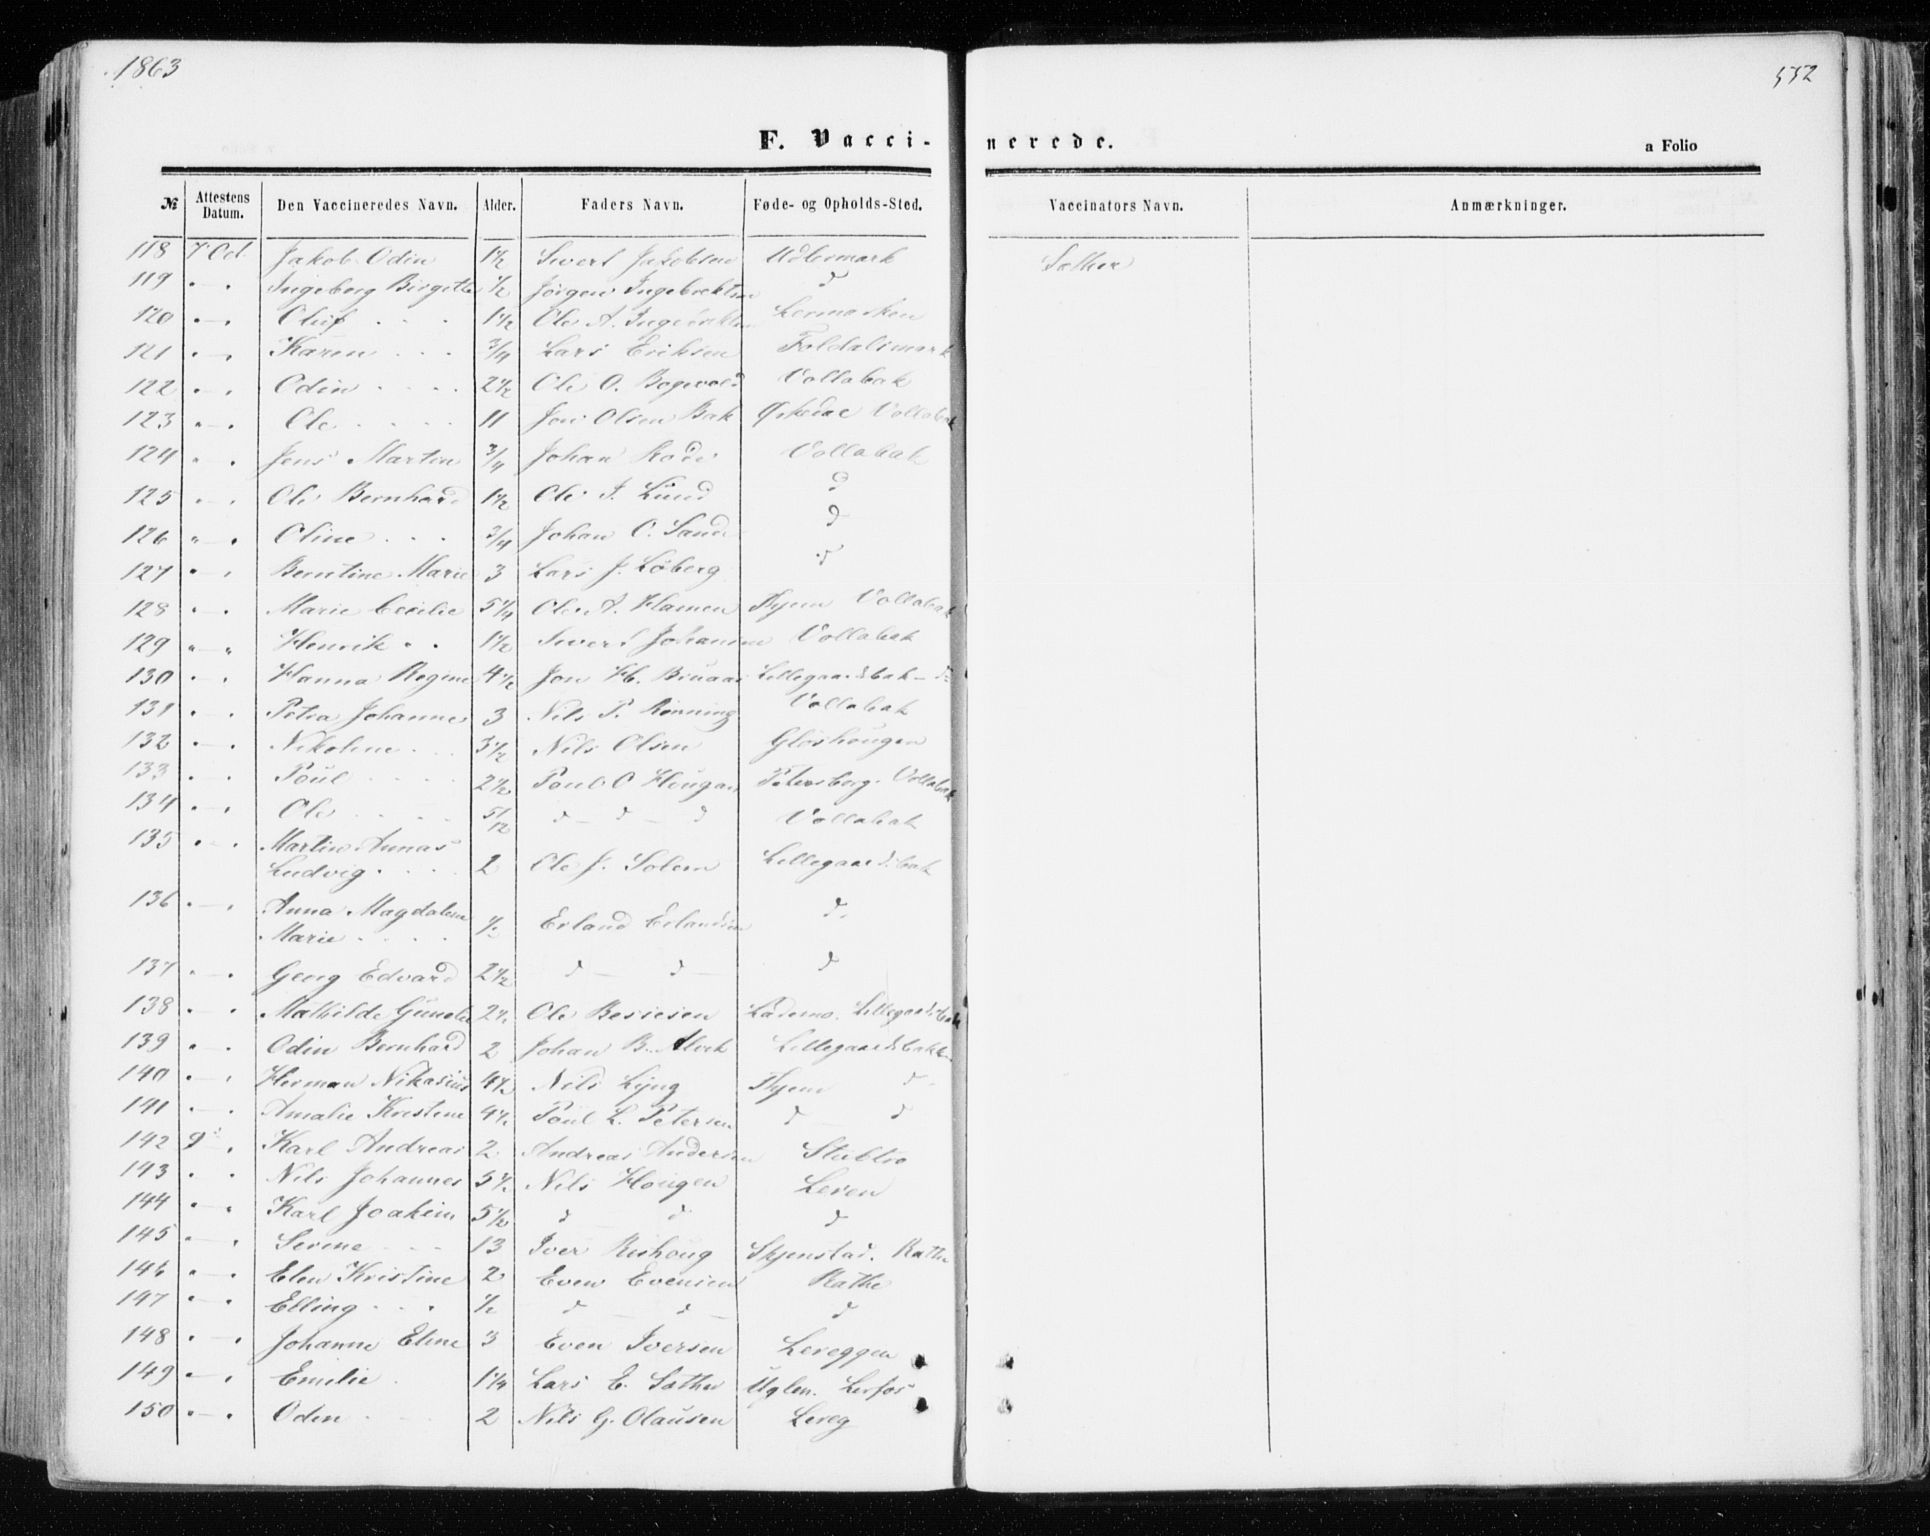 1863
552
F. Vacci-nerede.
a Folio
№ Attestens Datum. Den Vaccineredes Navn. Alder. Faders Navn. Føde- og Opholds-Sted. Vaccinators Navn. Anmærkninger.
118 7 Oct Jakob Odin 1 1/2 Sivert Jakobsen Udlermark Sather
119 " — " Ingeborg Birgitte 1/2 Jørgen Ingebrektsen d
120 " — " Oluf 1 1/2 Ole A. Ingebrektsen
121 " — " Karen 3/4 Lars Eriksen
122 " — " Odin 2 1/2 Ole O. Bogevold Vollabak
123 " — " Ole 11 Jon Olsen Bak Ørkedal Vollabak
124 " — " Jens Martin 3/4 Johan Vollabak
125 " — " Ole Bernhard 1 1/2 Ole I. Lund d
126 " — " Oline 3/4 Johan O. Sand d
127 " — " Berntine Marie 3 Lars J. Løberg d
128 " — " Marie Cecilie 5 1/4 Ole A. Hamen Thjem Vollabak
129 " — " Henrik 1 1/2 Sivert Johansen Vollabak
130 " — " Hanna Regine 4 1/2 Jon H. Bruaas Lillegaardsbak — d
131 " — " Petra Johanne 3 Nils P. Rønning Vollabak
132 " — " Nikoline 3 1/2 Nils Olsen Gløshougen
133 " — " Poul 2 1/2 Poul O Hougan Petersborg. Vollabak
134 " — " Ole 5/12 d — d — d Vollabak
135 " — " Martin Annas
Ludvig 2 Ole J. Solem Lillegaardsbak
136 " — " Anna Magdalena
Marie 1/2 Erland Erlandsen d
137 " — " Georg Edvard 2 1/2 d — d — d
138 " — " Mathilde 2 1/2 Ole Besiesen Lademo. Lillegaardsbak
139 " — " Odin Bernhard 2 Johan B. Lillegaardsbakken
140 " — " Herman Nikasius 4 1/2 Nils Lyng Thjem d
141 " — " Amalie Kristine 4 1/2 Poul L. Petersen d — d
142 9 " Karl Andreas 2 Andreas Andersen Stubbo
143 " — " Nils Johannes 5 1/2 Nils Hougen Leren
144 " — " Karl Joakim 5 1/2 d — d d
145 " — " Serine 13 Iver Rishoug Skjenstad. Rathe
146 " — " Elen Kristine 2 Even Evensen Rathe
147 " — " Elling 1/2 d — d — d
148 " — " Johanne Eline 3 Even Iversen Lereggen
149 " — " Emilie 1 1/4 Lars E. Sather Uglen. Lerfos
150 " — " Odin 2 Nils G. Olausen Lereg